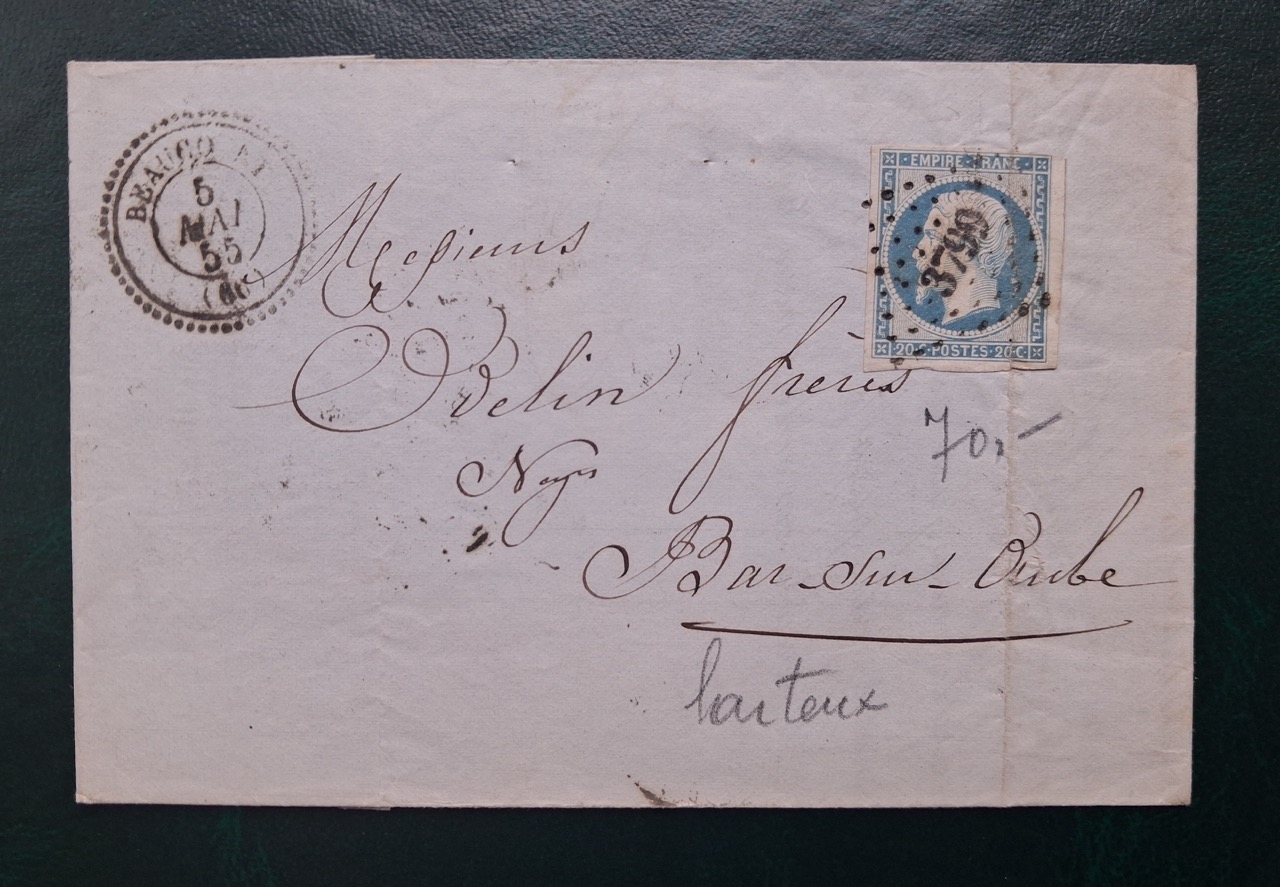 BEAUCO
5
MAI
55
(60)
EMPIRE FRANC
3790
20 C POSTES 20 C
Messieurs
Odelin frères
70,-
Bar-sur-Aube
larteux